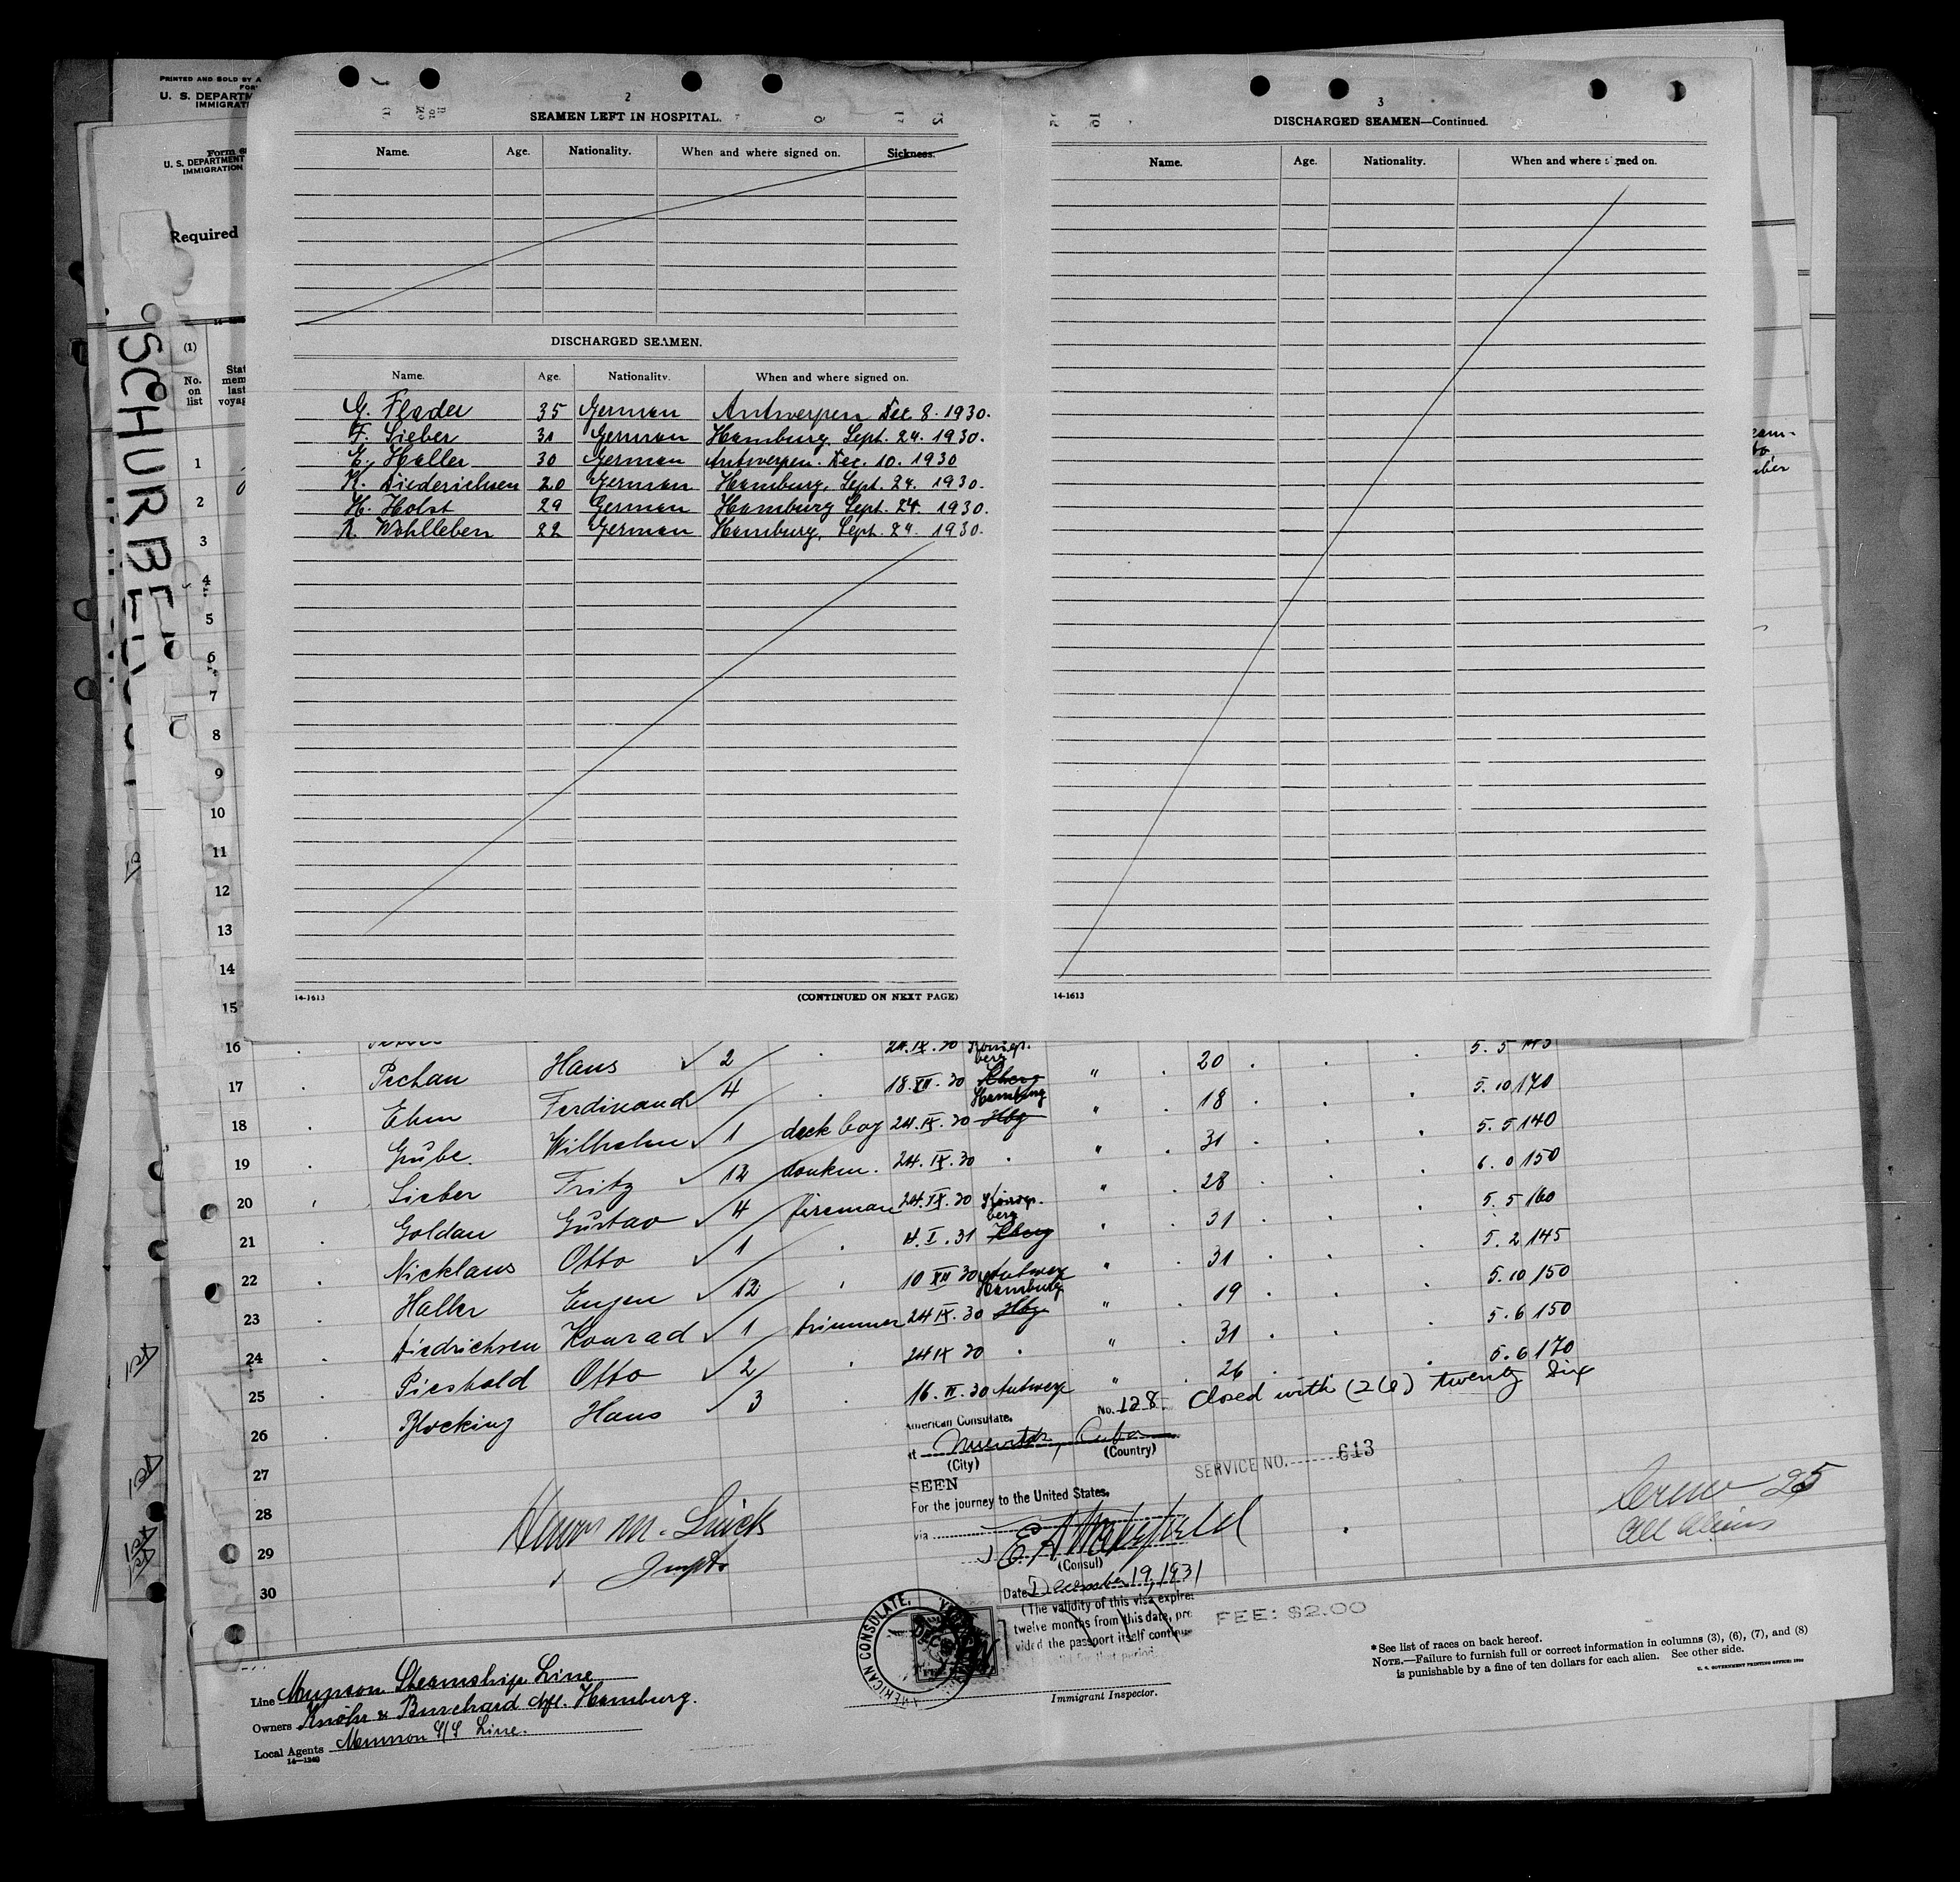 PRINTED AND SOLD BY
U. S. DEPARTM
IMMIGRATI
Form 68
U. S. DEPARTMENT
IMMIGRATION
Required
SCHURBE
(1)
No. on list
Stat mem last voyag
2
SEAMEN LEFT IN HOSPITAL.
Name. Age. Nationality. When and where signed on. Sickness.
DISCHARGED SEAMEN.
Name. Age. Nationality. When and where signed on.
G. Flader 35 German Antwerpen Dec 8. 1930.
F. Sieber 31 German Hamburg. Sept. 24. 1930.
E. Haller 30 German Antwerpen. Dec. 10. 1930
K. Diederichsen 20 German Hamburg, Sept. 24. 1930.
H. Holst 29 German Hamburg Sept. 24. 1930.
K. Wohlleben 22 German Hamburg, Sept. 24. 1930.
14-1613 (CONTINUED ON NEXT PAGE)
3
DISCHARGED SEAMEN—Continued.
Name. Age. Nationality. When and where signed on.
14-1613
1
2
3
4
5
6
7
8
9
10
11
12
13
14
15
16 24.IX.30 5.5 145
17 Pechau Haus 2 18.XII.30 Königsberg " 20 5.10 170
18 Ehm Ferdinand 4 Hamburg 18 5.5 140
19 Grube Wilhelm 1 deck boy 24.IX.30 Hbg " 31 6.0 150
20 Sieber Fritz 12 donkm. 24.IX.30 " 28 5.5 160
21 Goldau Gustav 4 fireman 24.IX.30 Königsberg " 31 5.2 145
22 Nicklaus Otto 1 4.I.31 " 31 5.10 150
23 Haller Eugen 12 10 XII 30 Antwerp " 19 5.6 150
24 Diedrichsen Konrad 1 trimmer 24 IX.30 Hamburg Hbg " 31 5.6 170
25 Piesbold Otto 2 24 IX 30 " 26
26 Blocking Hans 3 16.II.30 Antwerp
27
28
29
30
closed with (26) twenty six
American Consulate. No. 128
at Nuevitas, Cuba
(City) (Country)
SEEN
For the journey to the United States,
via
E. A. Wakefield
(Consul)
Date December 19, 1931
(The validity of this visa expires
twelve months from this date, pro-
vided the passport itself continue
SERVICE NO. 613
FEE: $2.00
AMERICAN CONSULATE.
Insptr
25
all aliens
Line Munson Steamship Line
Owners Knöhr & Burchard Nfl. Hamburg.
Local Agents Munson S/S Line.
14—1240
Immigrant Inspector.
*See list of races on back hereof.
NOTE.—Failure to furnish full or correct information in columns (3), (6), (7), and (8)
is punishable by a fine of ten dollars for each alien. See other side.
U. S. GOVERNMENT PRINTING OFFICE: 1930